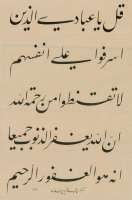 قل يا عبادي الذين
اسرفوا على انفسهم
لا تقنطوا من رحمة الله
ان الله يغفر الذنوب جميعا
انه هو الغفور الرحيم